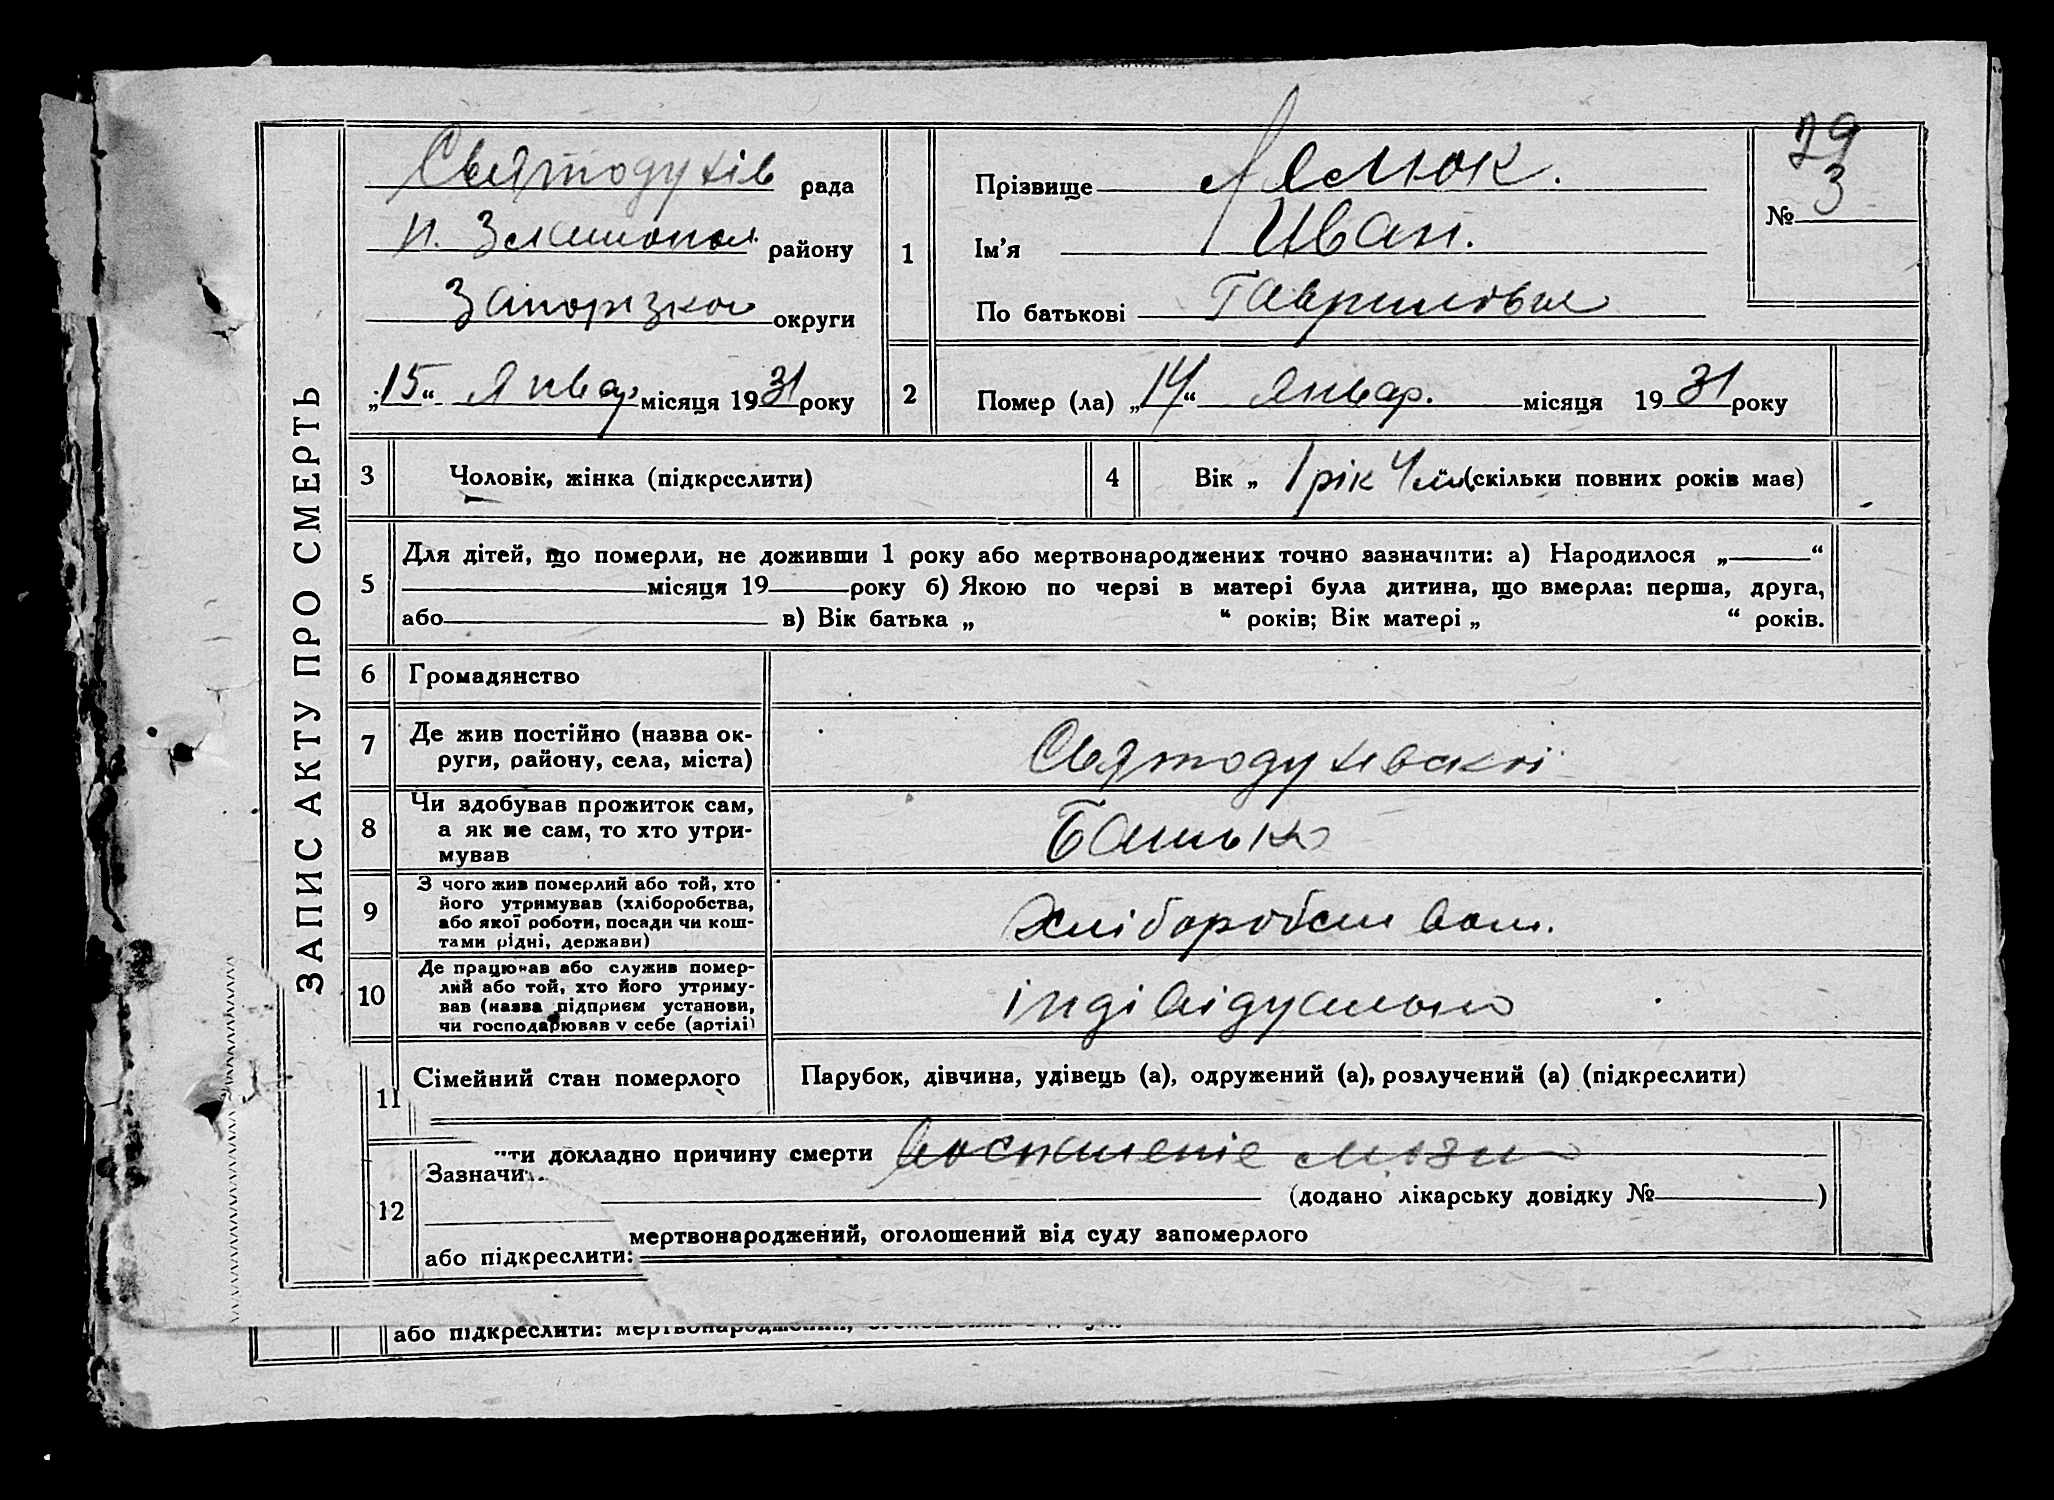 ЗАПИС АКТУ ПРО СМЕРТЬ
Святодухів рада
Н. Златопол. району
Запорізкої округи
„15“ Январ місяця 1931 року
29
№ 3
1
Прізвище Лясюк.
Ім’я Иван.
По батькові Гаврилович
2 Помер (ла) „14“ Январ. місяця 1931 року
3 Чоловік, жінка (підкреслити)
4 Вік „ 1 рік 4 м. (скільки повних років має)
5 Для дітей, що померли, не доживши 1 року або мертвонароджених точно зазначити: а) Народилося „ “
місяця 19 року б) Якою по черзі в матері була дитина, що вмерла: перша, друга,
або в) Вік батька „ “ років; Вік матері „ “ років.
6 Громадянство
7 Де жив постійно (назва ок-
руги, району, села, міста)
Святодухівскої
8 Чи здобував прожиток сам,
а як не сам, то хто утри-
мував
Батько
9 З чого жив померлий або той, хто
його утримував (хліборобства,
або якої роботи, посади чи кош-
тами рідні, держави)
Хліборобством.
10 Де працював або служив помер-
лий або той, хто його утриму-
вав (назва підприєм установи,
чи господарював у себе (артілі)
індівідуально
11 Сімейний стан померлого
Парубок, дівчина, удівець (а), одружений (а), розлучений (а) (підкреслити)
12 Зазначи
ити докладно причину смерти Воспаленіе мозга
(додано лікарську довідку № )
мертвонароджений, оголошений від суду запомерлого
або підкреслити:
або підкреслити: мертвонароджений,